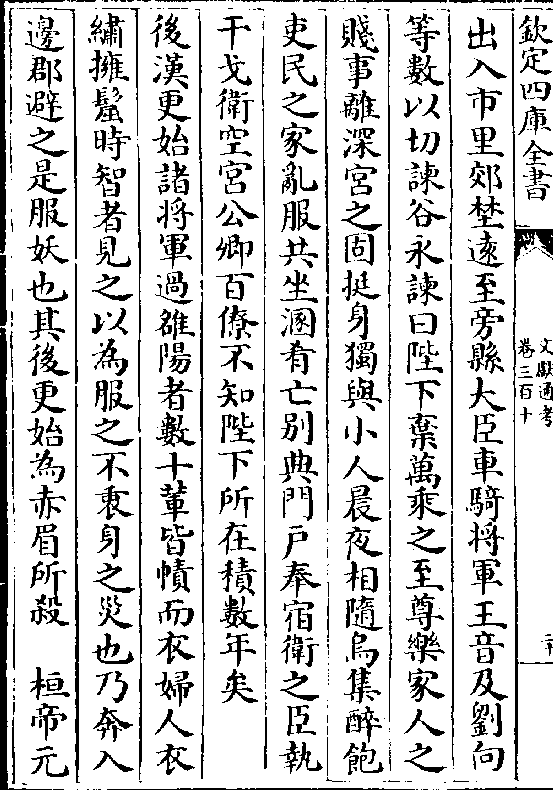 欽定四庫全書
文獻通考
卷三百十
出入市里郊埜遠至旁縣大臣車騎將軍王音及劉向
等數以切諫谷永諫曰陛下棄萬乘之至尊樂家人之
賤事離深宮之固挺身獨與小人晨夜相隨烏集醉飽
吏民之家亂服共坐溷肴亡别典門戶奉宿衛之臣執
干戈衛空宮公卿百僚不知陛下所在積數年矣
後漢更始諸將軍過雒陽者數十軰皆幘而衣婦人衣
繡擁髷時智者見之以為服之不衷身之災也乃奔入
邊郡避之是服妖也其後更始為赤眉所殺　桓帝元